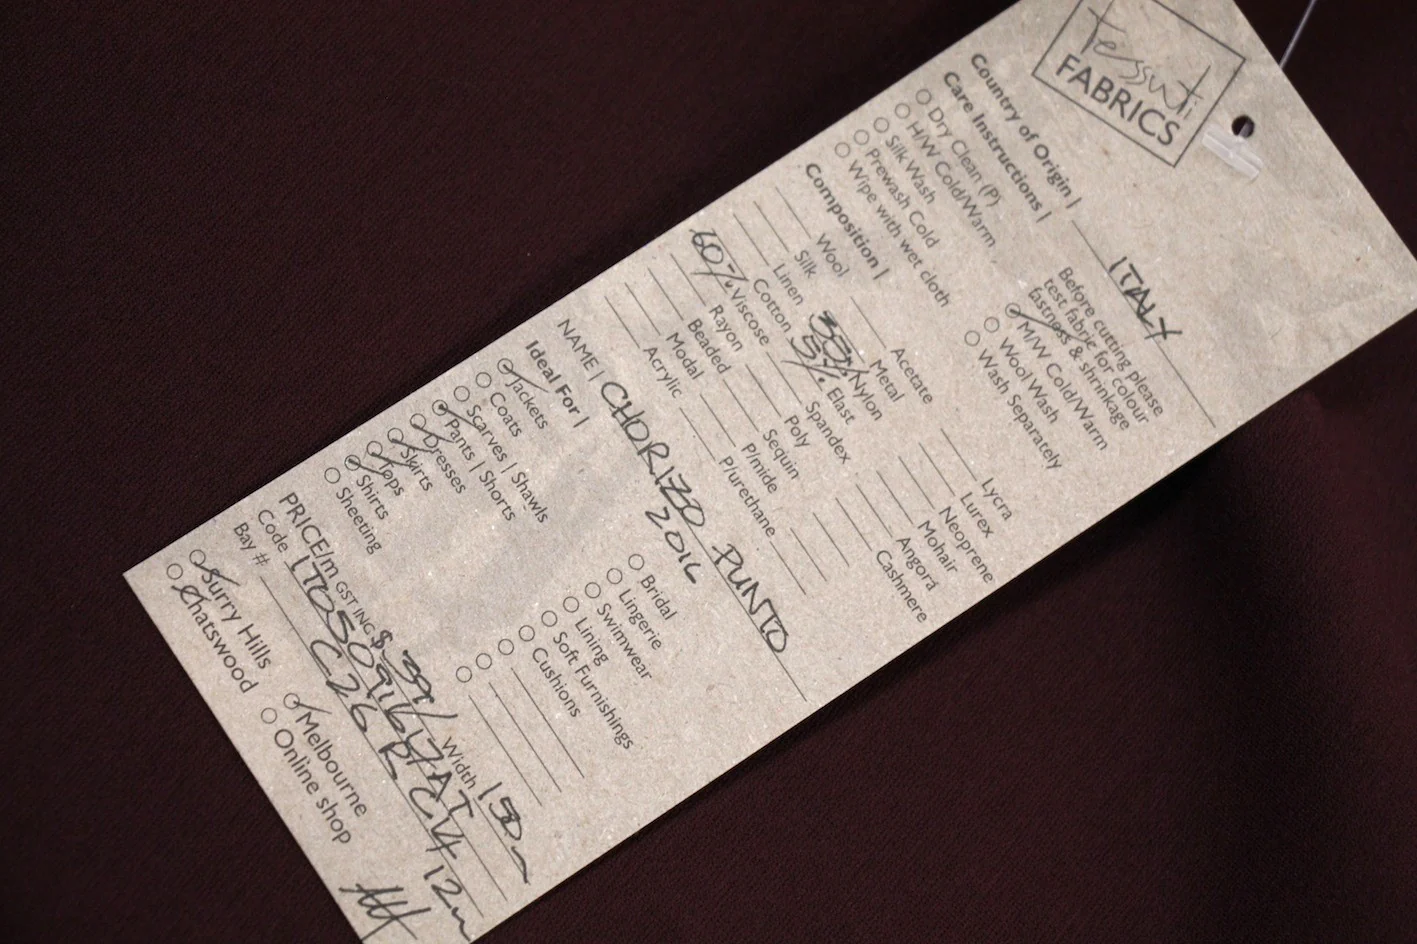 Tessuti
FABRICS
Country of Origin | ITALY
Care Instructions |
Before cutting please
test fabric for colour
fastness & shrinkage
Dry Clean (P)
H/W Cold/Warm
Silk Wash
Prewash Cold
Wipe with wet cloth
M/W Cold/Warm
Wool Wash
Wash Separately
Composition |
Wool
Silk
Linen
Cotton
60% Viscose
Rayon
Beaded
Modal
Acrylic
Acetate
Metal
Nylon
5% Elast
Spandex
Poly
Sequin
P/mide
P/urethane
Lycra
Lurex
Neoprene
Mohair
Angorá
Cashmere
NAME | CHORIZO PUNTO
Ideal For |
Jackets
Coats
Scarves | Shawls
Pants | Shorts
Dresses
Skirts
Tops
Shirts
Sheeting
Bridal
Lingerie
Swimwear
Lining
Soft Furnishings
Cushions
PRICE/m GST INC $ 39/ Width 150
Code
Bay # C26 B
Surry Hills
Chatswood
Melbourne
Online shop